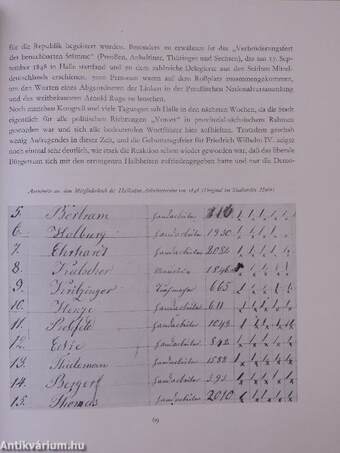 für die Republik begeistert wurden. Besonders zu erwähnen ist das „Verbrüderungsfest
der benachbarten Stämme" (Preußen, Anhaltiner, Thüringer und Sachsen), das am 17. Sep-
tember 1848 in Halle stattfand und zu dem zahlreiche Delegierte aus den Städten Mittel-
deutschlands erschienen. Personen waren auf dem Roßplatz zusammengekommen,
um den Worten eines Abgeordneten der Linken in der Preußischen Nationalversammlung
und des weltbekannten Arnold Ruge zu lauschen.
Noch manchen Kongreß und viele Tagungen sah Halle in den nächsten Wochen, da die Stadt
eigentlich für alle politischen Richtungen „Vorort" im provinzial-sächsischen Rahmen
geworden war und sich alle bedeutenden Wortführer hier aufhielten. Trotzdem geschah
wenig Aufregendes in dieser Zeit, und die Geburtstagsfeier für Friedrich Wilhelm IV. zeigte
noch einmal sehr deutlich, wie stark die Reaktion schon wieder geworden war, daß das liberale
Bürgertum sich mit den errungenen Halbheiten zufriedengegeben hatte und nur die Demo-
Ausschnitt aus dem Mitgliederbuch des Halleschen Arbeitervereins von 1848 (Original im Stadtarchiv Halle)
5. Bertram Handarbeiter 816
6. Holburg Handarbeiter 1930
7. Ehrhardt Handarbeiter 2082
8. 1846
9. 665
10. Henze Handarbeiter 611
11. Handarbeiter 1243
12. Handarbeiter 842
13. Thieleman Handarbeiter 1588
14. Handarbeiter 393
15. Thomas Handarbeiter 2010
69
Antikvárium.hu